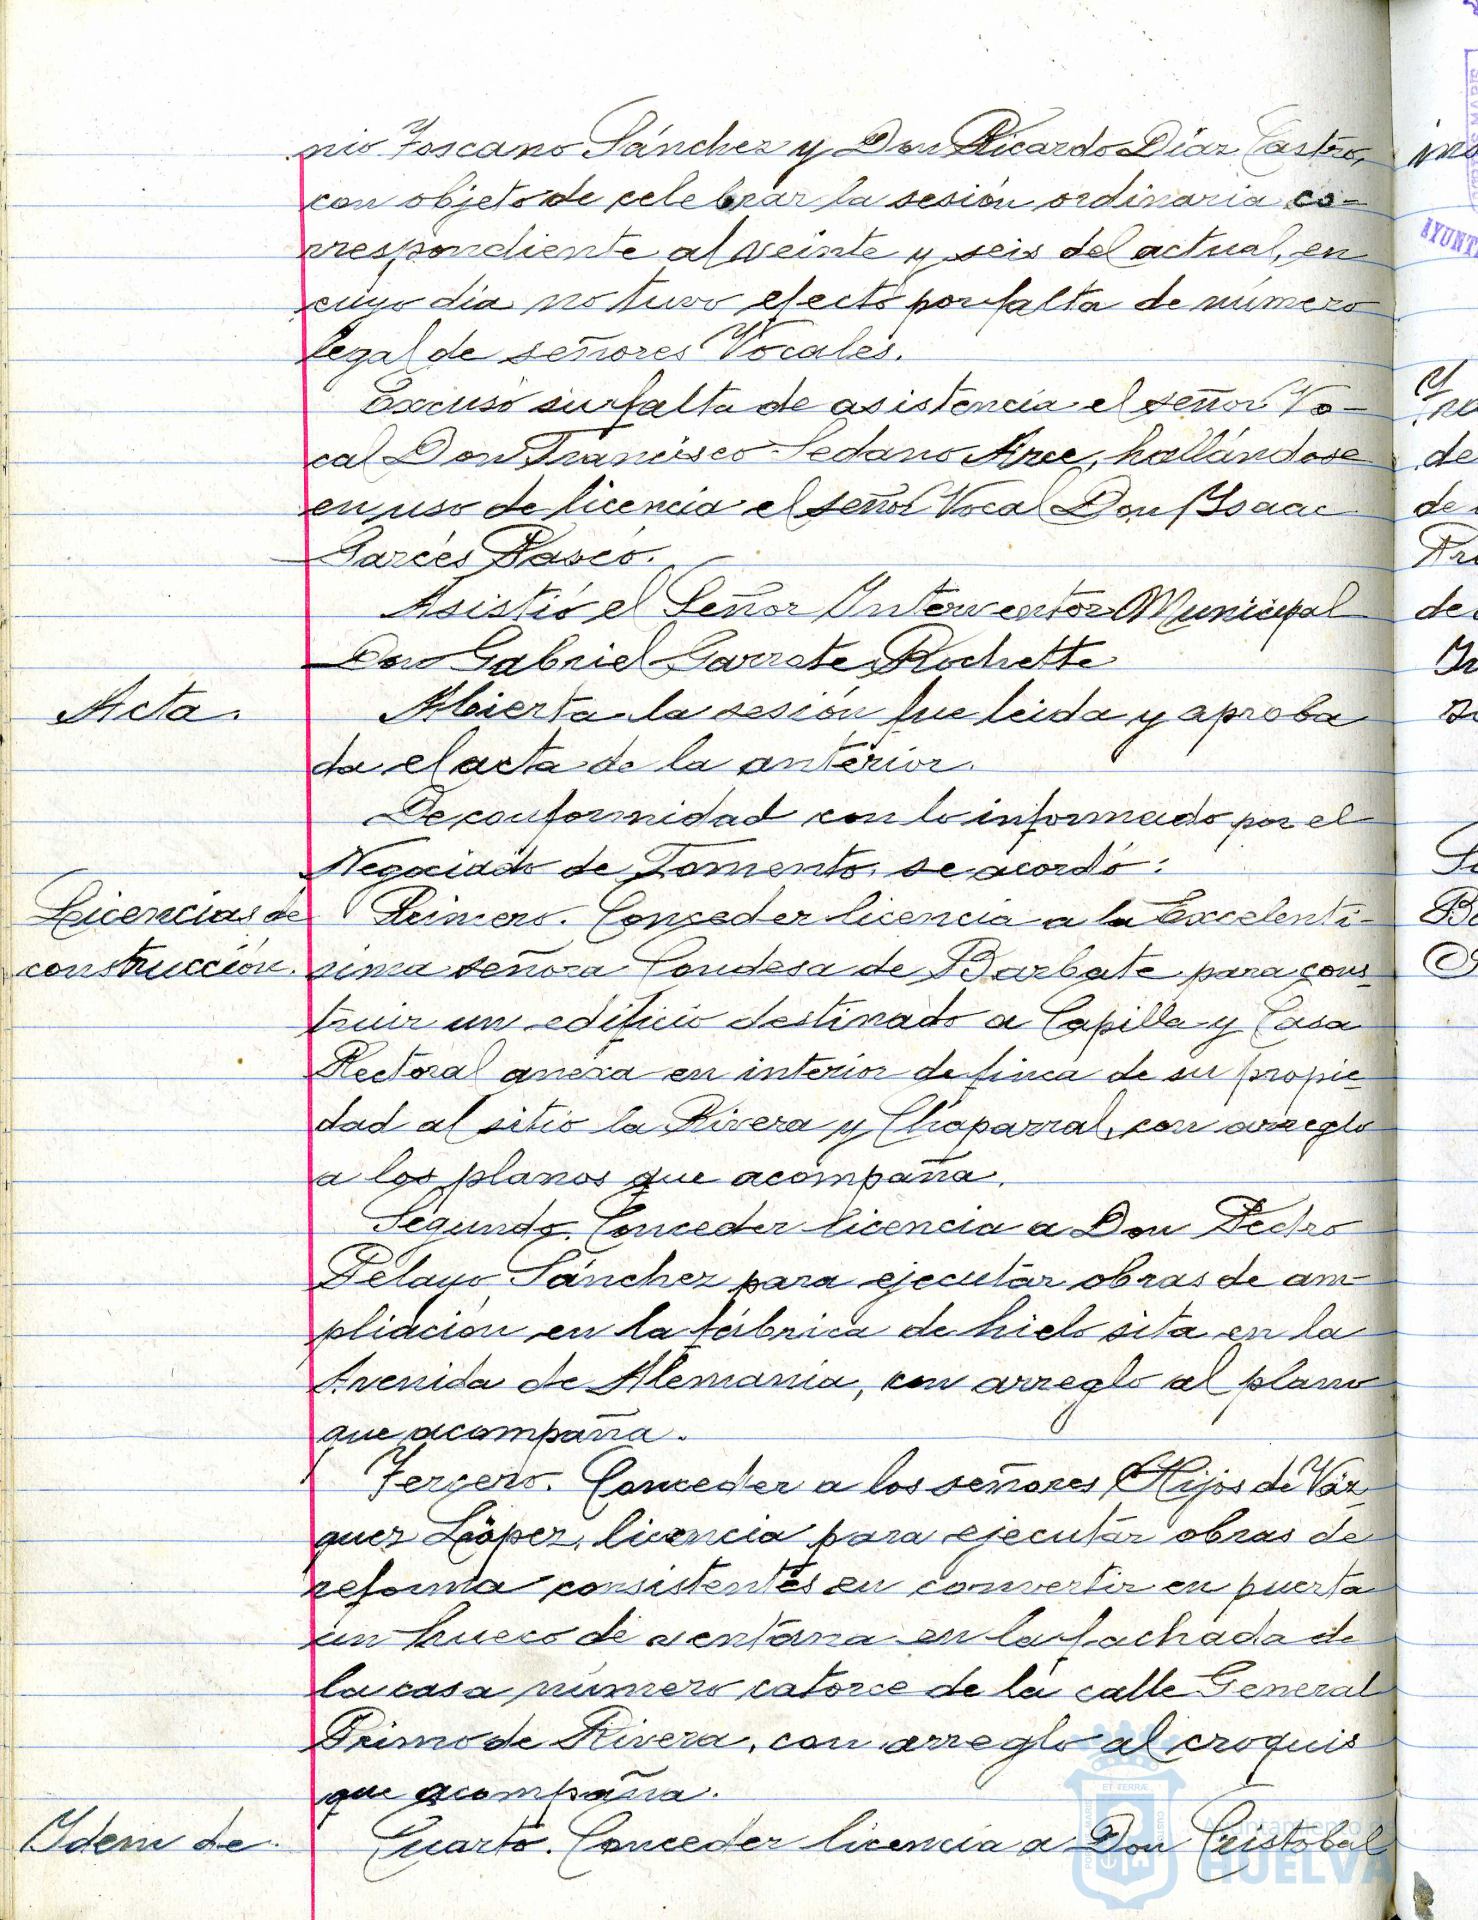 nio Toscano Sánchez y Don Ricardo Díaz Castro,
con objeto de celebrar la sesión ordinaria co-
rrespondiente al veinte y seis del actual, en
cuyo dia no tuvo efecto por falta de número
legal de señores Vocales.
Excusó su falta de asistencia el señor Vo-
cal Don Francisco Sedano Arce, hallándose
en uso de licencia el señor Vocal Don Ysaac
Garcés Rascó.
Asistió el Señor Ynterventor Municipal
Don Gabriel Garrote Rochette
Acta.
Abierta la sesión fue leida y aproba
da el acta de la anterior.
De conformidad con lo informado por el
Negociado de Fomento, se acordó:
Licencias de
construcción.
Primero. Conceder licencia a la Excelenti-
sima señora Condesa de Barbate para cons-
truir un edificio destinado a Capilla y Casa
Rectoral anexa en interior de finca de su propie-
dad al sitio la Rivera y Chaparral, con arreglo
a los planos que acompaña.
Segundo. Conceder licencia a Don Pedro
Pelayo Sánchez para ejecutar obras de am-
pliación en la fábrica de hielo sita en la
Avenida de Alemania, con arreglo al plano
que acompaña.
Tercero. Conceder a los señores Hijos de Váz-
quez López, licencia para ejecutar obras de
reforma consistentes en convertir en puerta
un hueco de ventana en la fachada de
la casa número catorce de la calle General
Primo de Rivera, con arreglo al croquis
que acompaña.
Ydem de
Cuarto. Conceder licencia a Don Cristobal
Ayuntamiento
HUELVA